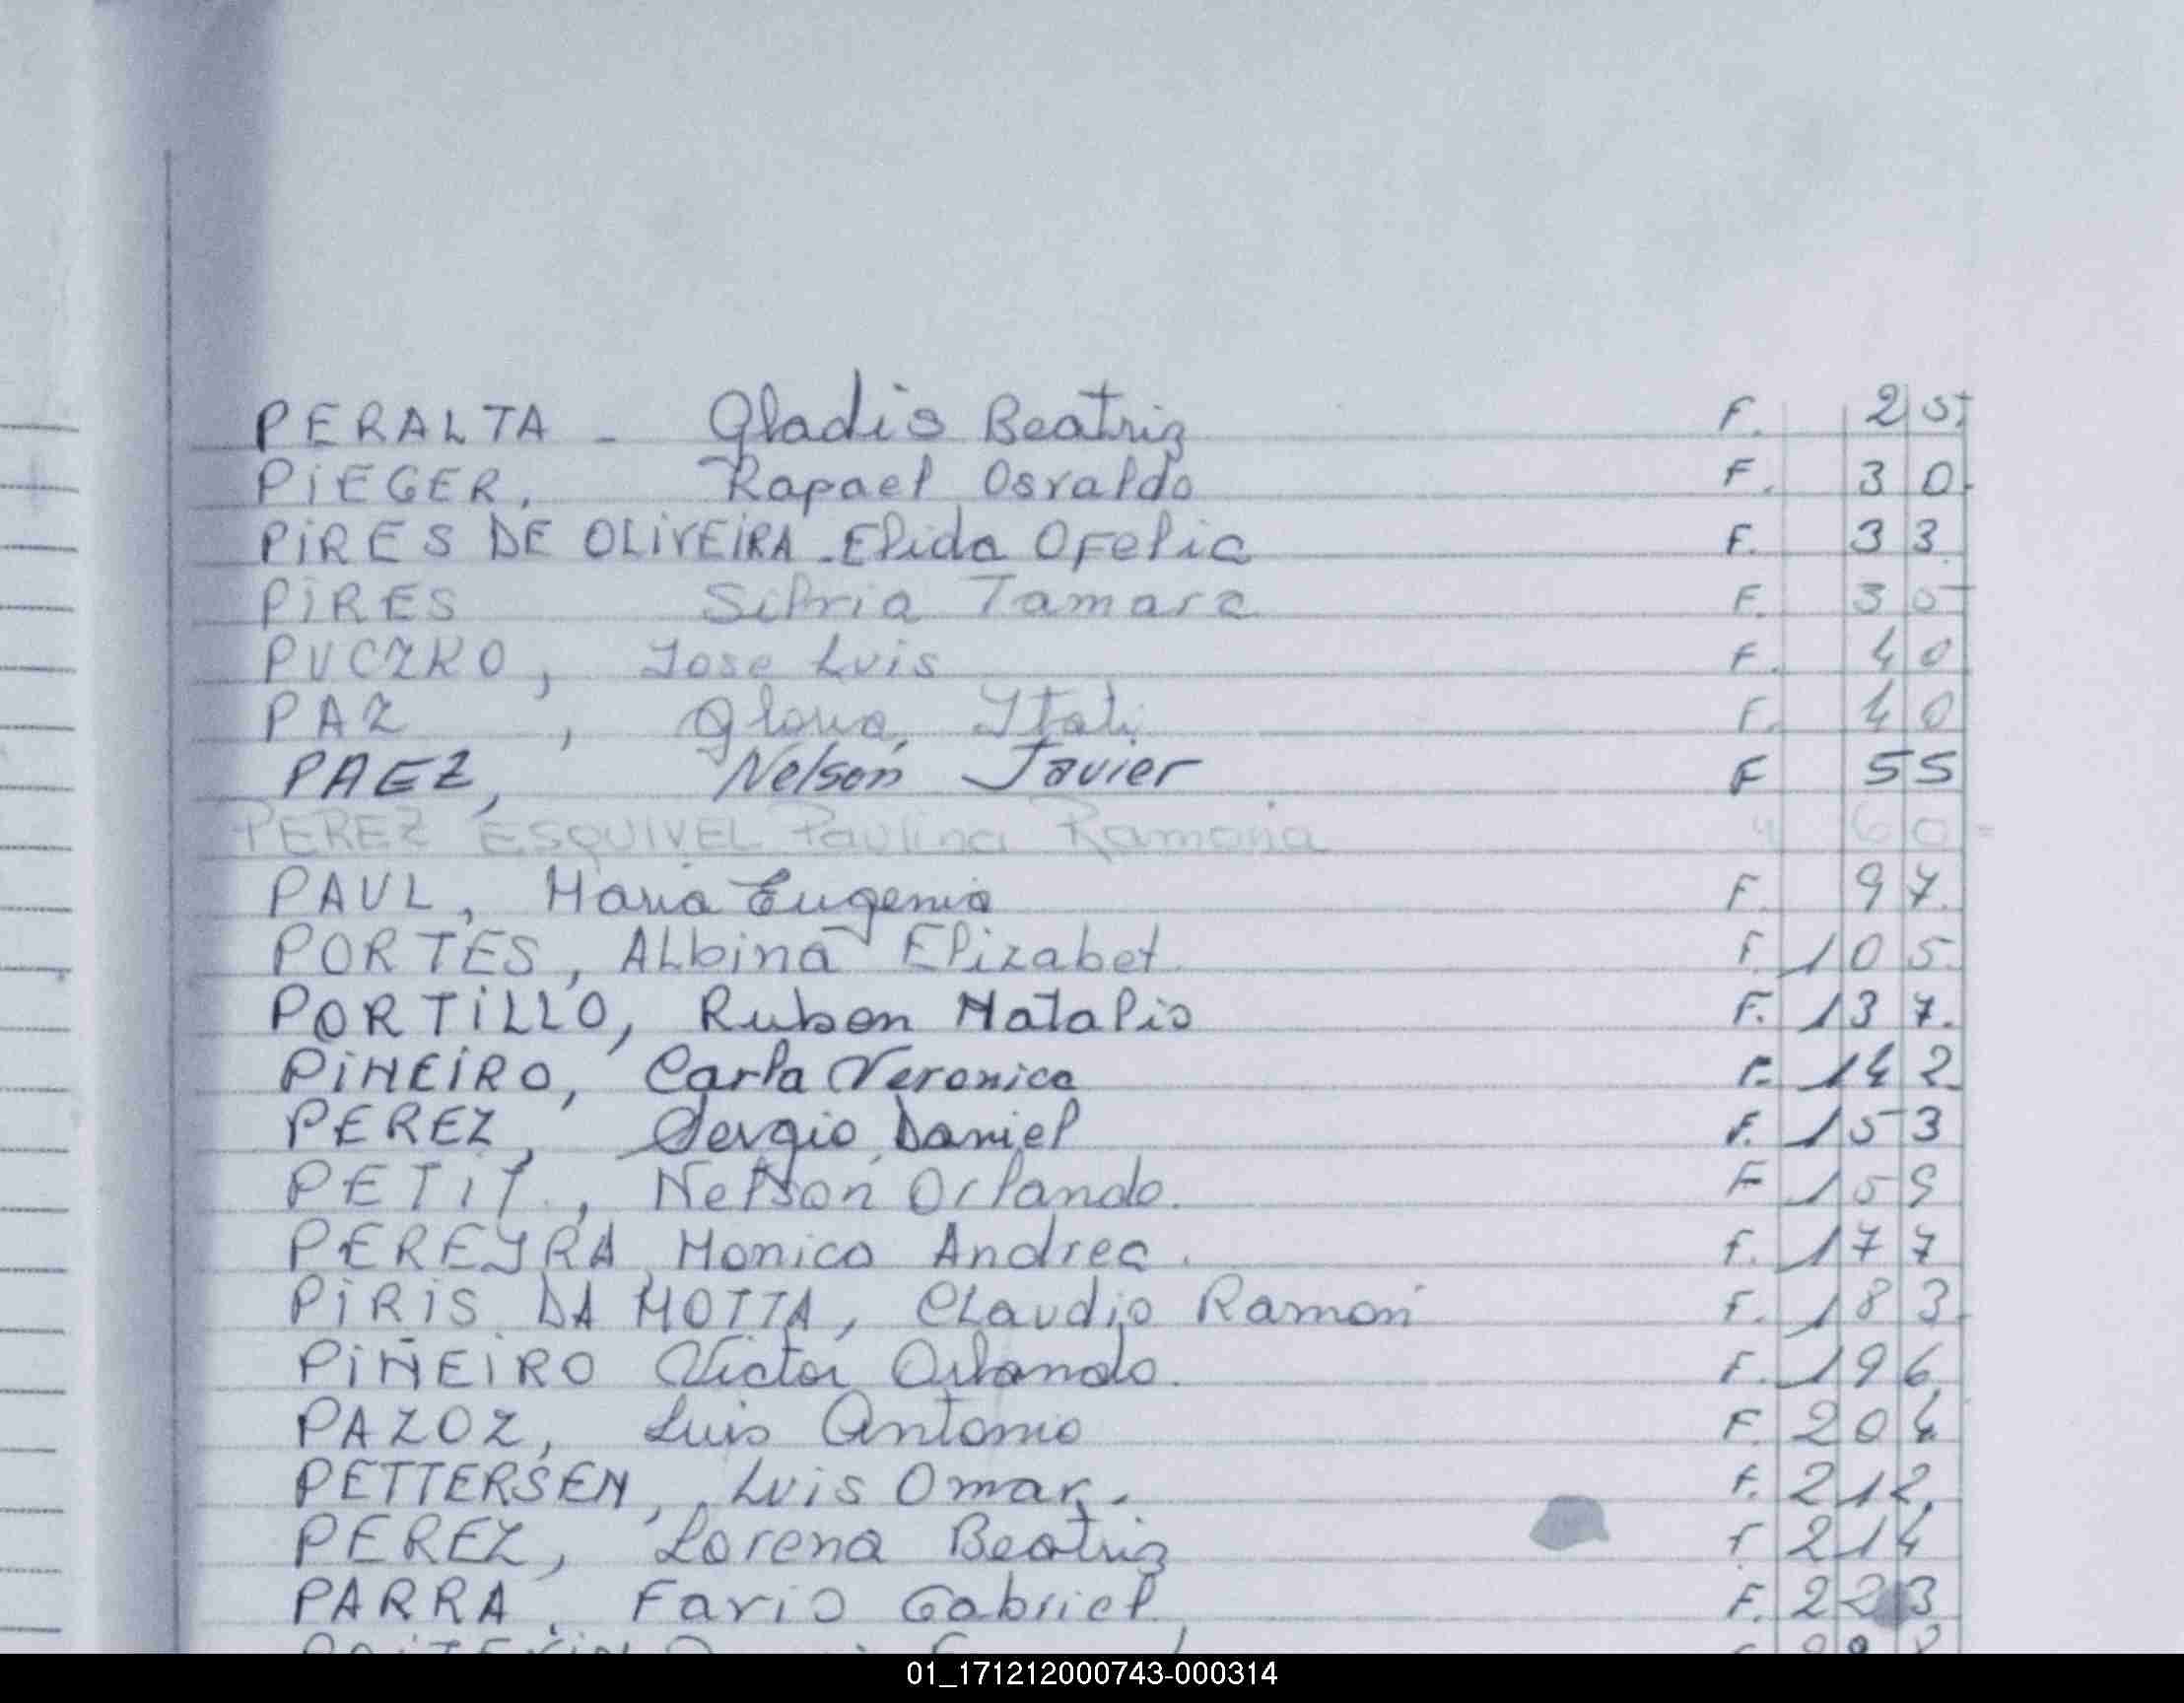 PERALTA - Gladis Beatriz F. 25.
PIEGER, Rafael Osvaldo F. 30.
PIRES DE OLIVEIRA - Elida Ofelia F. 33
PIRES Silvia Tamara F. 35
PUCZKO, Jose Luis F. 40
PAZ, Gloria, Itati F. 40
PAEZ, Nelson Javier F 55
PEREZ ESQUIVEL Paulina Ramona " 60 =
PAUL, Maria Eugenia F. 97.
PORTES, ALbina Elizabet F. 105.
PORTiLLO, Ruben Natalio F. 137.
PiNEiRO, Carla Veronica F. 142
PEREZ, Sergio Daniel F. 153
PETiT., Nelson Orlando. F 159
PEREYRA, Monica Andrea. F. 177
PiRiS DA MOTTA, CLaudio Ramon F. 183.
PiÑEiRO Victor Orlando. F. 196
PAZOZ, Luis Antonio F. 204
PETTERSEN, Luis Omar. F. 212,
PEREZ, Lorena Beatriz F 214
PARRA, Favio Gabriel, F. 223
01_171212000743-000314